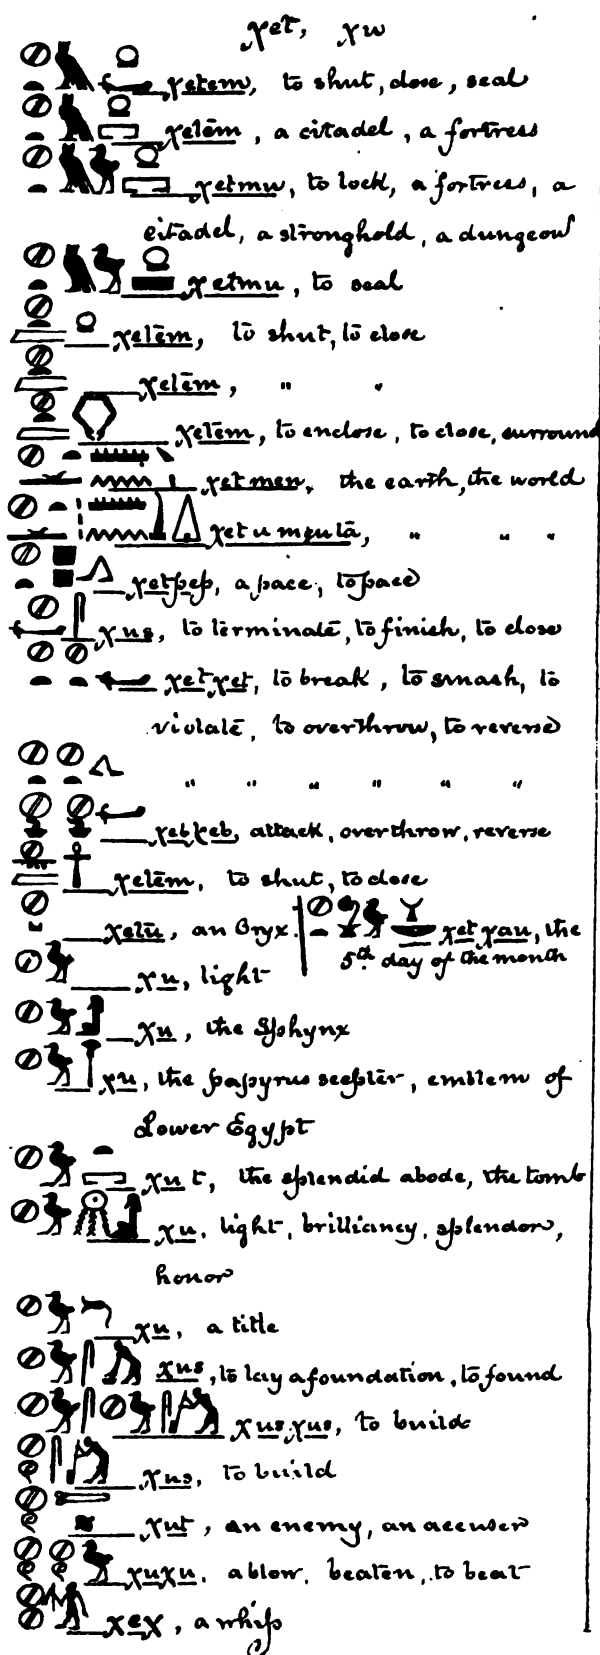 χet, χu
χetem, to shut, close, seal
χetēm, a citadel, a fortress
χetmu, to lock, a fortress, a
citadel, a stronghold, a dungeon
χetmu, to seal
χetēm, to shut, to close
χetēm, " "
χetēm, to enclose, to close, surround
χet men, the earth, the world
χet u , " " "
χetpep, a pace, to pace
χus, to terminate, to finish, to close
χetχet, to break, to smash, to
violate, to overthrow, to reverse
" " " " " "
χebχeb, attack, overthrow, reverse
χetēm, to shut, to close
χetū, an Oryx.
χet χau, the
5th day of the month
χu, light
χu, the Sphynx
χu, the papyrus scepter, emblem of
Lower Egypt
χut, the splendid abode, the tomb
χu, light, brilliancy, splendor,
honor
χu, a title
χus, to lay a foundation, to found
χusχus, to build
χus, to build
χut, an enemy, an accuser
χuχu, a blow, beaten, to beat
χeχ, a whip